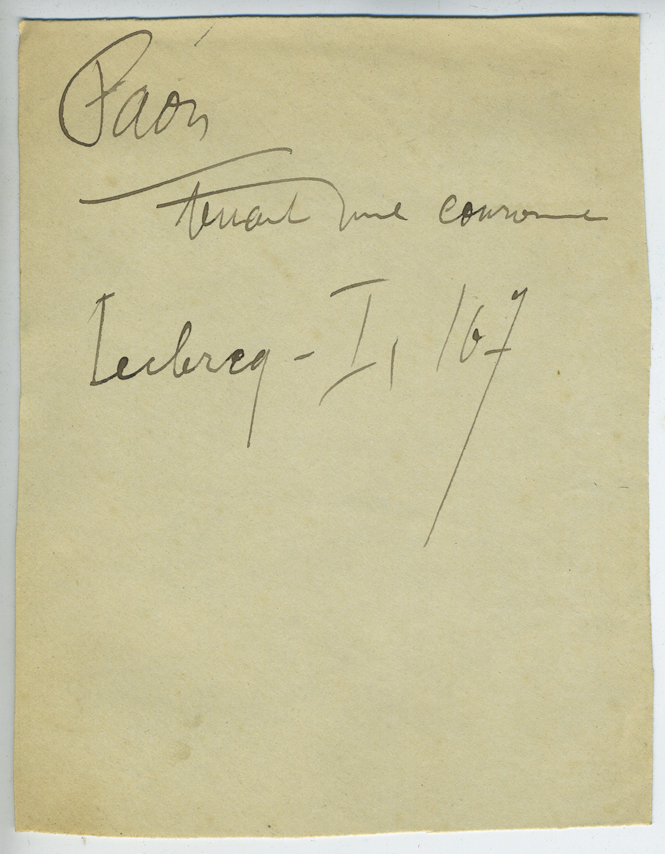 Paon
tenant une couronne
Leclercq - I, 167